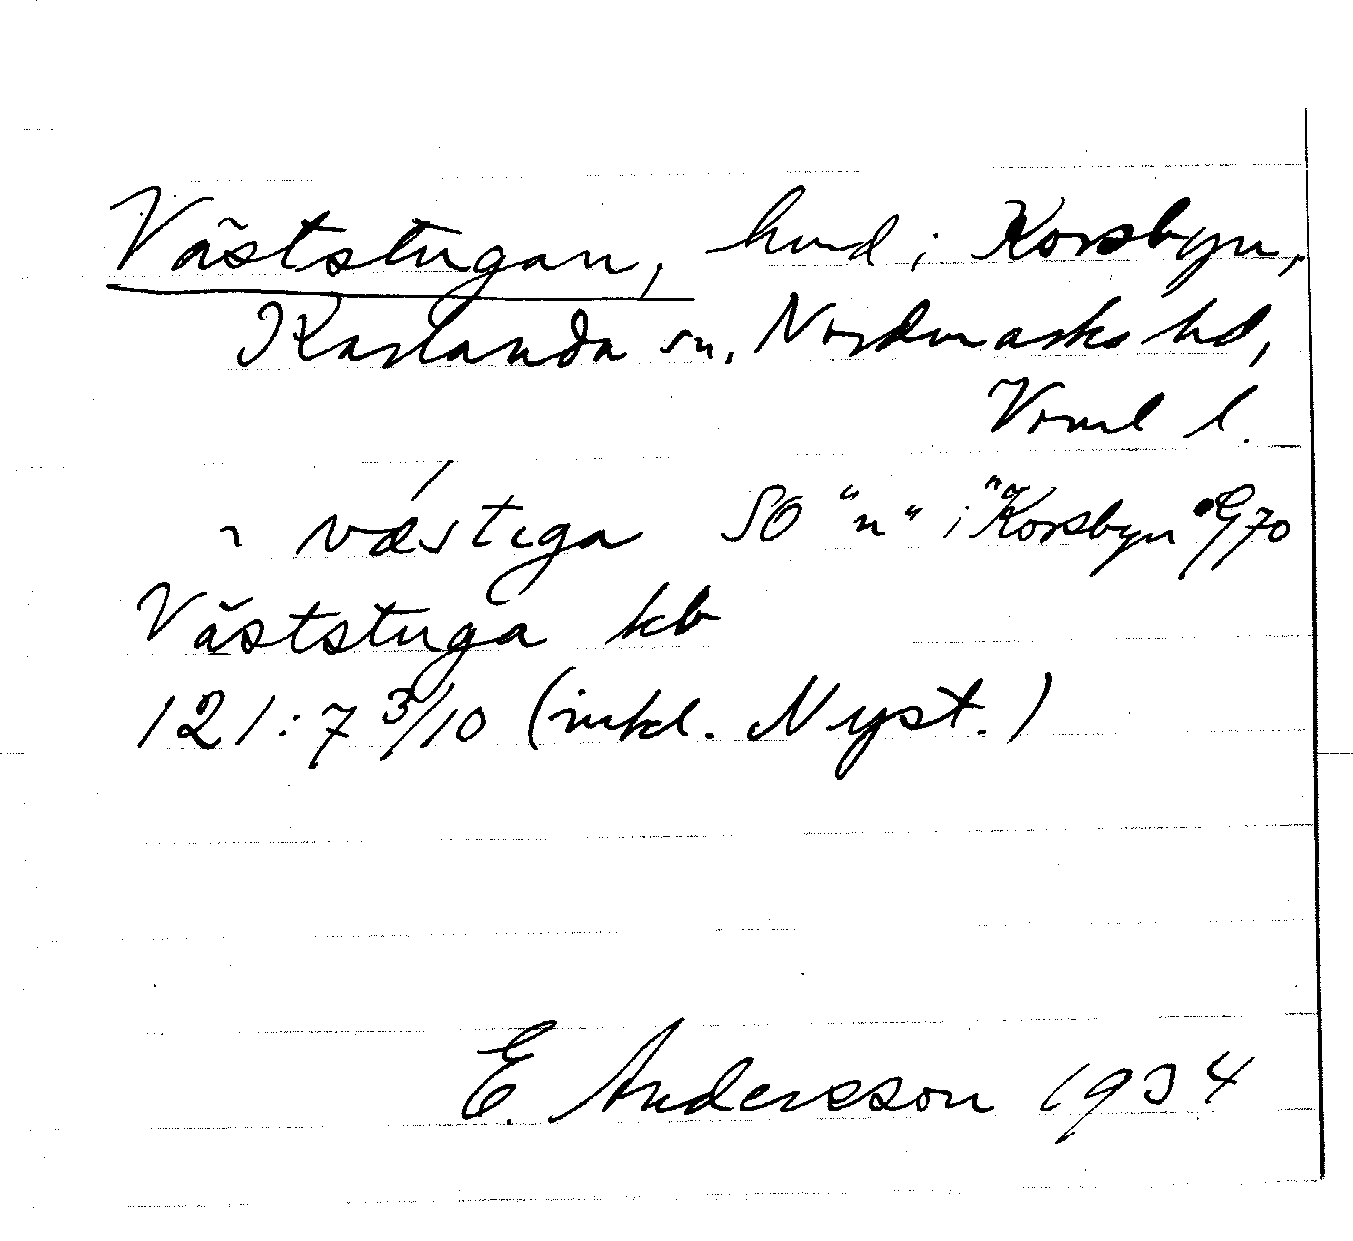 Väststugan, hmd i Korsbyn,
Karlanda sn, Nordmarks hd,
Vrml l.
väśtŭga SO "n" i "Korsbyn" G70
Väststuga kb
121:7 3/10 (inkl. Nyst.)
E. Andersson 1934